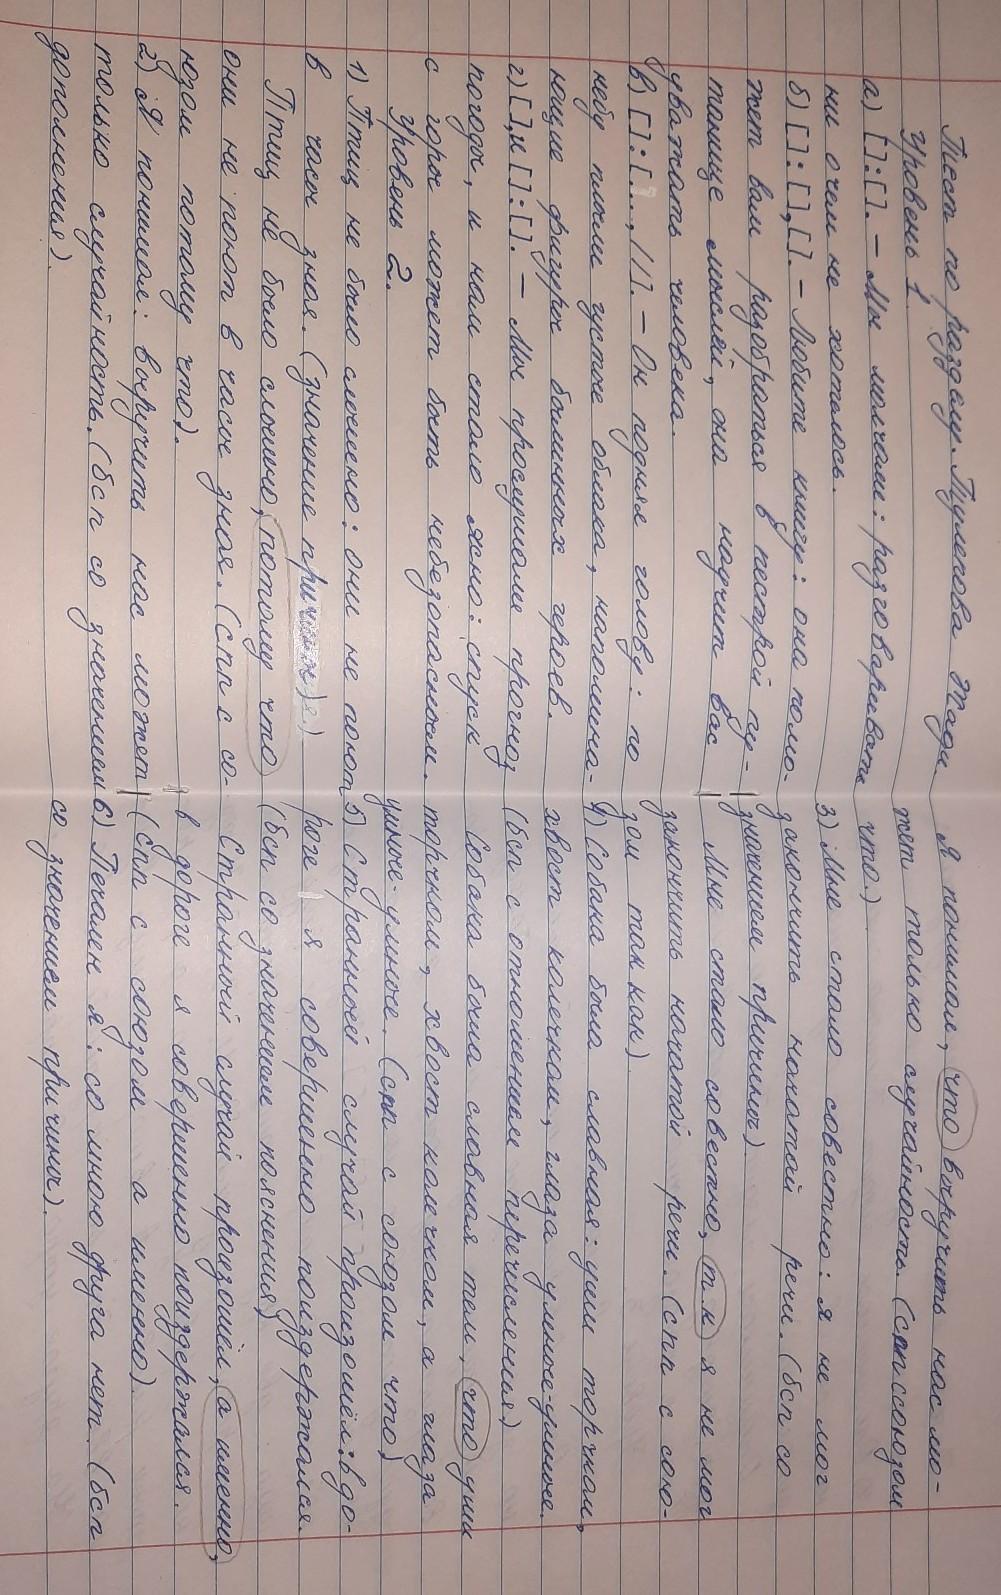 Тест по разделу. Пулегова Тади.
Уровень 1.
а) []:[]. – Мы молчали: разговаривать
ни о чем не хотелось.
б) []:[],[]. – Любите книгу: она помо-
жет вам разобраться в пестрой пу-
танице мыслей, она научит вас
уважать человека.
в) []:[..., |/|]. – Он поднял голову: по
небу плыли густые облака, напомина-
ющие фигуры былинных героев.
г) [],и []:[]. – Мы прослушали прогноз
погоды, и нам стало ясно: спуск
с горы может быть небезопасным.
Уровень 2.
1) Птиц не было слышно: они не поют
в часы зноя. (значение причины)
Птиц не было слышно, потому что
они не поют в часы зноя. (спп с со-
юзом потому что).
2) Я понимал: выручить нас может
только случайность. (бсп со значением
дополнения).
Я понимал, что выручить нас мо-
жет только случайность. (спп с союзом
что.)
3) Мне стало совестно: я не мог
закончить начатой речи. (бсп со
значением причины)
Мне стало совестно, т.к я не мог
закончить начатой речи. (спп с сою-
зом так как)
4) Собака была славная: уши торчком,
хвост колечком, глаза умные-умные.
(бсп с отношением перечисления)
Собака была славная тем, что уши
торчком, хвост колечком, а глаза
умные-умные. (спп с союзом что)
5) Странный случай произошёл: в до-
роге я совершенно поиздержался.
(бсп со значением пояснения)
Странный случай произошёл, а именно,
в дороге я совершенно поиздержался.
(спп с союзом а именно).
6) Печален я: со мною друга нет. (бсп
со значением причины).